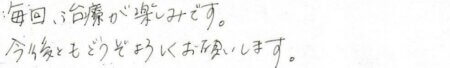 毎回、治療が楽しみです。
今後ともどうぞよろしくお願いします。